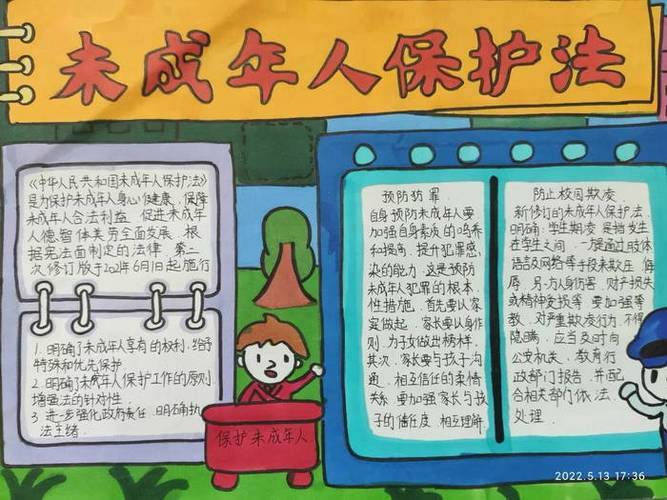 未成年人保护法
《中华人民共和国未成年人保护法》
是为保护未成年人身心健康，保障
未成年人合法利益 促进未成年
人德智体美劳全面发展，根
据宪法面制定的法律，第二
次修订版于2021年6月1日起施行
1. 明确了未成年享有的权利，给予
特殊和优先保护
2. 明确了未成年人保护工作的原则
增强法的针对性
3 进一步强化政府责任 明确执
法主
保护未成年人
预防犯罪
自身预防未成年人要
加强自身素质的
和提高，提升犯罪感
染的能力 这是预防
未成年人犯罪的根本
性措施，首先要从家
庭做起，家长要以身作
则，为子女做出榜样，
其次，家长要与孩子沟
通，相互信任的亲情
关系 要加强家长与孩
子的信任度 相互理解
防止校园欺凌
新修订的未成年人保护法，
明确：学生欺凌是指发生
在学生之间，一施通过肢体
语言及网络等手段来欺压 侮
辱，另一方人身伤害，对产损失
或精神 等 要加强等
教，对严重欺凌行为，不得
隐瞒，应当及时向
公安机关、教育行
政部门报告，并配
合相关部门依法
处理．
2022.5.13 17:36